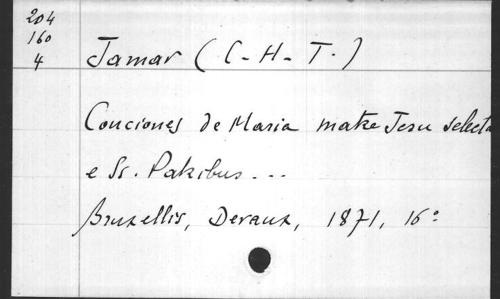 204
160
4
Jamar (C-H-T.)
Conciones de Maria matre Jesu selecta
e SS. Patribus ...
Bruxellis, Devaux, 1871, 16º